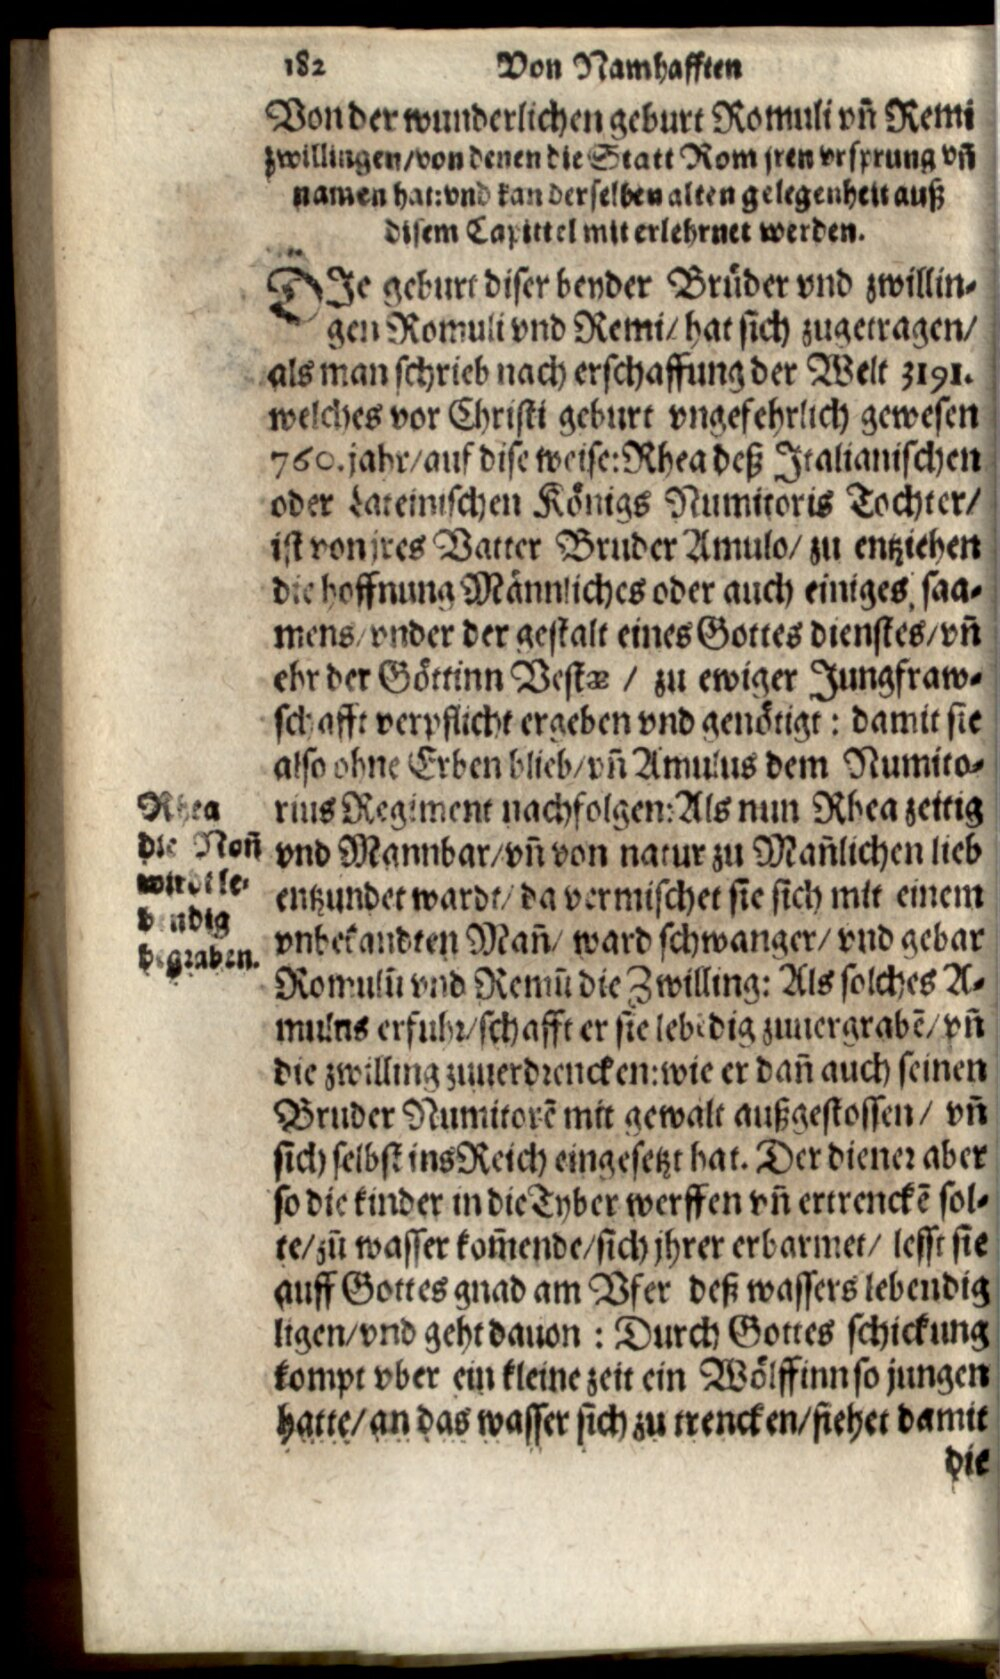 182 Von Namhafften
Von der wunderlichen geburt Romuli vn̄ Remi
zwillingen/von denen die Statt Rom jren vrsprung vn̄
namen hat: vnd kan derselben alten gelegenheit auß
disem Capittel mit erlehrnet werden.
DIe geburt diser beyder Brüder vnd zwillin-
gen Romuli vnd Remi/ hat sich zugetragen/
als man schrieb nach erschaffung der Welt 3191.
welches vor Christi geburt vngefehrlich gewesen
760. jahr/auf dise weise: Rhea deß Italianischen
oder Lateinischen Königs Numitoris Tochter/
ist von jres Vatter Bruder Amulo/ zu entziehen
die hoffnung Männliches oder auch einiges saa-
mens/vnder der gestalt eines Gottes dienstes/vn̄
ehr der Göttinn Vestæ / zu ewiger Jungfraw-
schafft verpflicht ergeben vnd genötigt : damit sie
also ohne Erben blieb/vn̄ Amulus dem Numito-
rius Regiment nachfolgen: Als nun Rhea zeitig
vnd Mannbar/vn̄ von natur zu Man̄lichen lieb
entzundet wardt/ da vermischet sie sich mit einem
vnbekandten Man̄/ ward schwanger/ vnd gebar
Romulū vnd Remū die Zwilling: Als solches A-
mulus erfuhr/schafft er sie lebēdig zuuergrabē/vn̄
die zwilling zuuerdrencken: wie er dan̄ auch seinen
Bruder Numitorē mit gewalt außgestossen/ vn̄
sich selbst ins Reich eingesetzt hat. Der diener aber
so die kinder in die Tyber werffen vn̄ ertrenckē sol-
te/zū wasser kom̄ende/sich jhrer erbarmet/ lesst sie
auff Gottes gnad am Vfer deß wassers lebendig
ligen/vnd geht dauon : Durch Gottes schickung
kompt vber ein kleine zeit ein Wölffinn so jungen
hatte/an das wasser sich zu trencken/siehet damit
die
Rhea
die Non̄
wirdt le-
bendig
begraben.